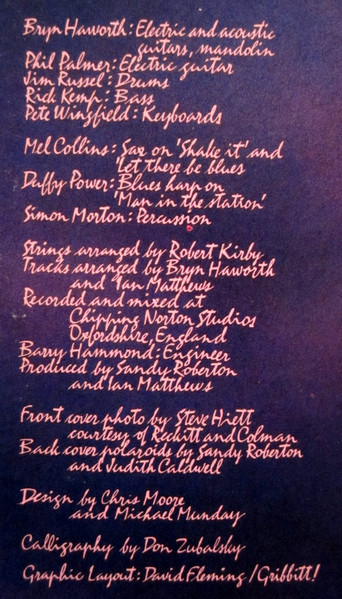 Bryn Haworth: Electric and acoustic
guitars, mandolin
Phil Palmer: Electric guitar
Jim Russel: Drums
Rick Kemp: Bass
Pete Wingfield: Keyboards
Mel Collins: Sax on 'Shake it' and
'Let there be blues
Duffy Power: Blues harp on
'Man in the station'
Simon Morton: Percussion
Strings arranged by Robert Kirby
Tracks arranged by Bryn Haworth
and Ian Matthews
Recorded and mixed at
Chipping Norton Studios
Oxfordshire, England
Barry Hammond: Engineer
Produced by Sandy Roberton
and Ian Matthews
Front cover photo by Steve Hiett
courtesy of Reckitt and Colman
Back cover polaroids by Sandy Roberton
and Judith Caldwell
Design by Chris Moore
and Michael Munday
Calligraphy by Don Zubalsky
Graphic Layout: David Fleming / Gribbitt!